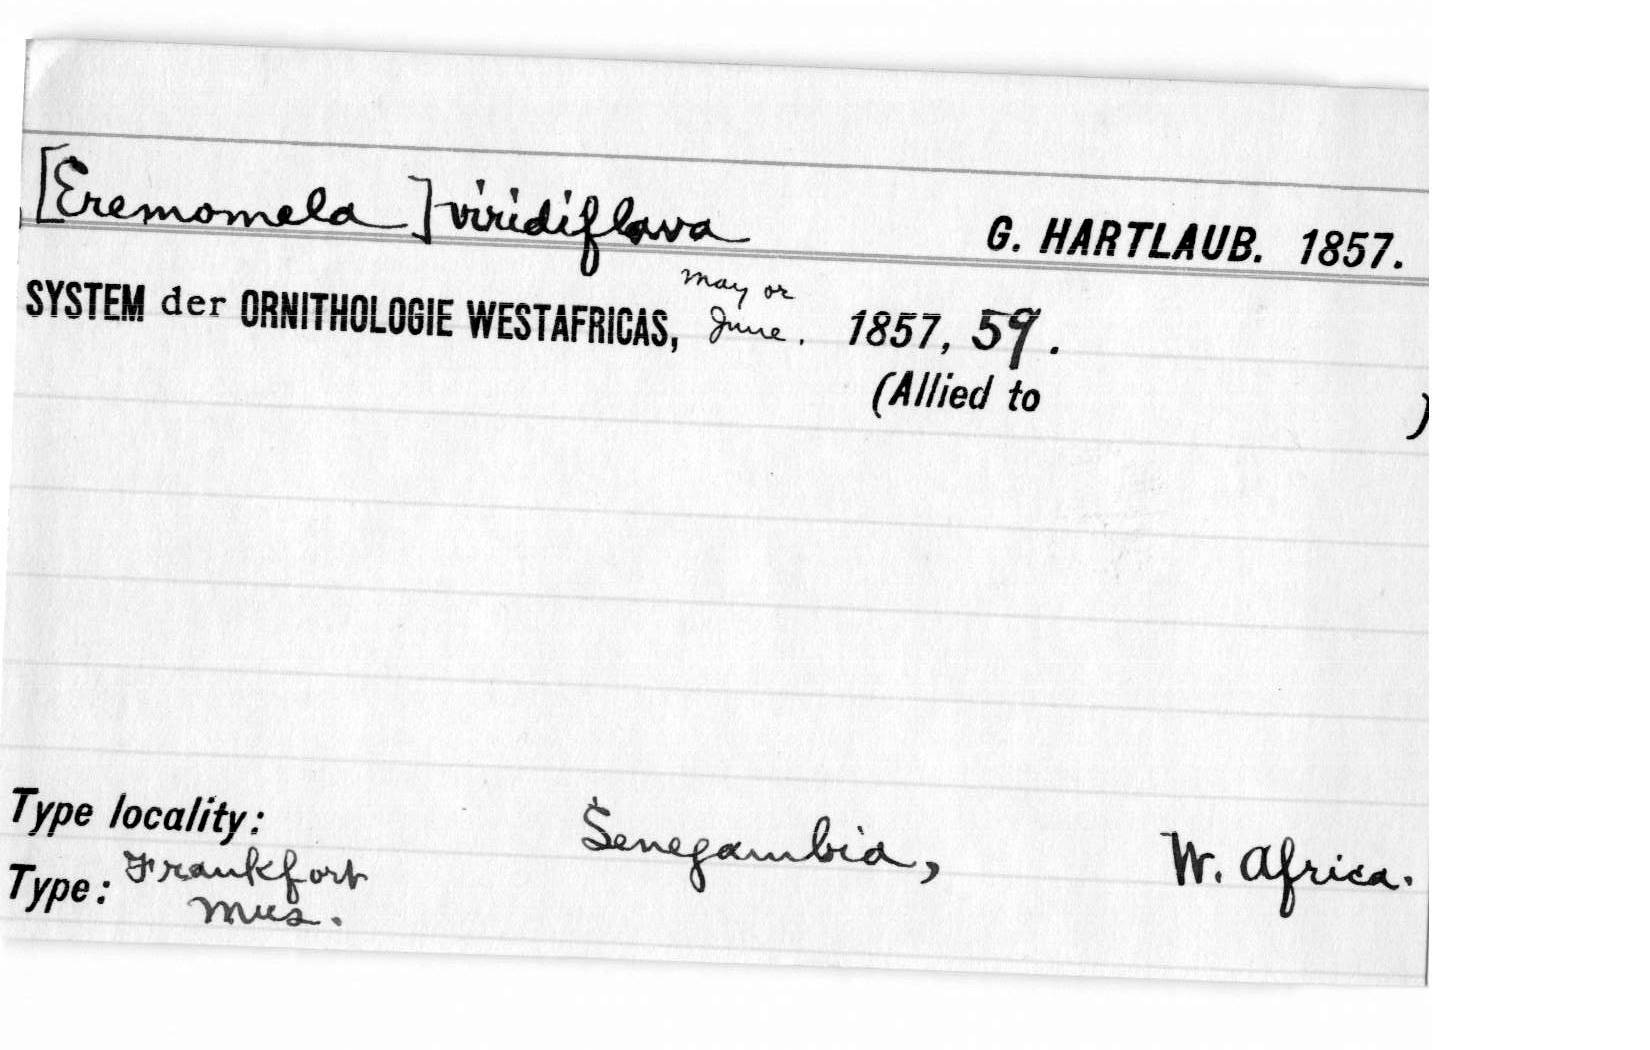 [Eremomela] viridiflava G. HARTLAUB. 1857.
May or
SYSTEM der ORNITHOLOGIE WESTAFRICAS, June. 1857, 59.
(Allied to )
Type locality: Senegambia, W. Africa.
Type: Frankfort
Mus.